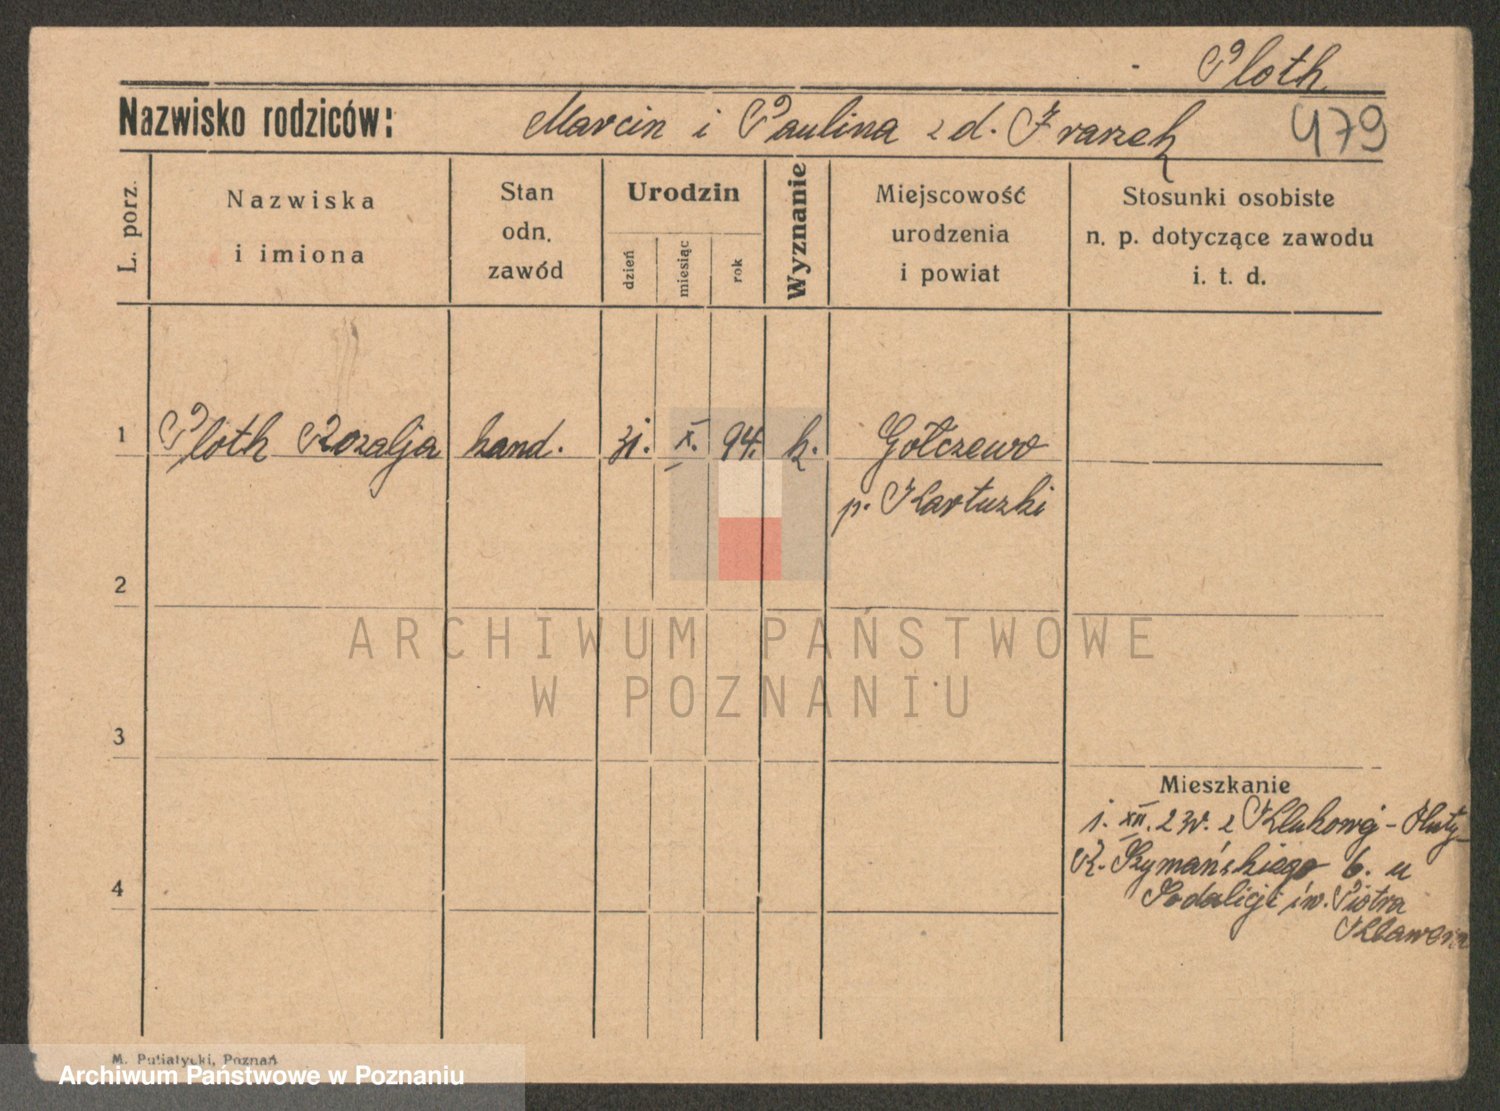 Ploth
Nazwisko rodziców: Marcin i Paulina z d. 479
L. porz.
Nazwiska
i imiona
Stan
odn.
zawód
Urodzin
dzień
miesiąc
rok
Wyznanie
Miejscowość
urodzenia
i powiat
Stosunki osobiste
n. p. dotyczące zawodu
i. t. d.
1 Ploth Rozalja hand. 31. X. 94. k. Gołczewo
p. Kartuzki
2
ARCHIWUM PAŃSTWOWE
W POZNANIU
3
Mieszkanie
1. XII. z Klukowej-Huty
R. Szymańskiego 6. u
4
Sodalicji św. Piotra
Klawera
M. Putiatycki, Poznań
Archiwum Państwowe w Poznaniu